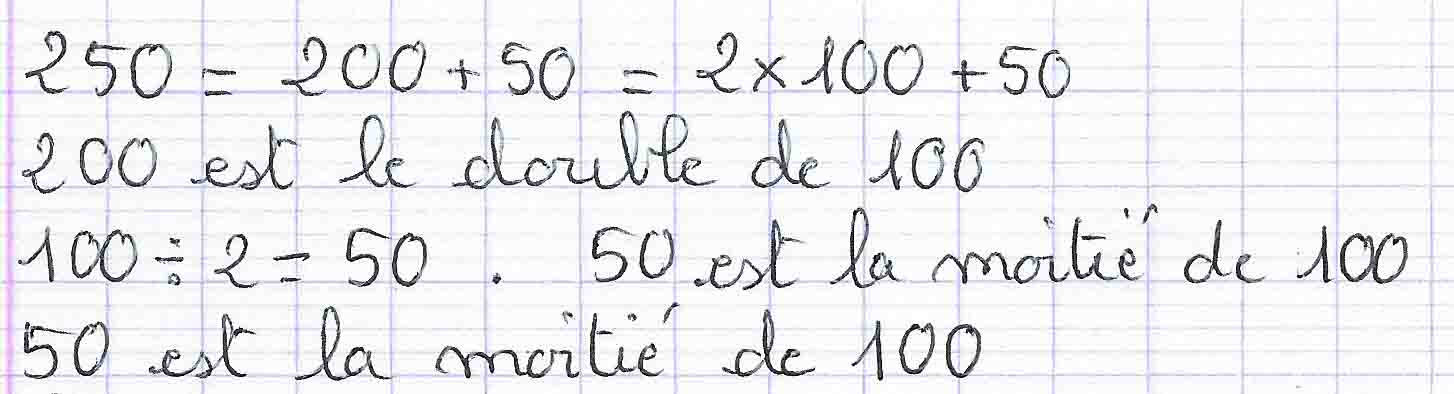 250 = 200 + 50 = 2 × 100 + 50
200 est le double de 100
100 ÷ 2 = 50 . 50 est la moitié de 100
50 est la moitié de 100